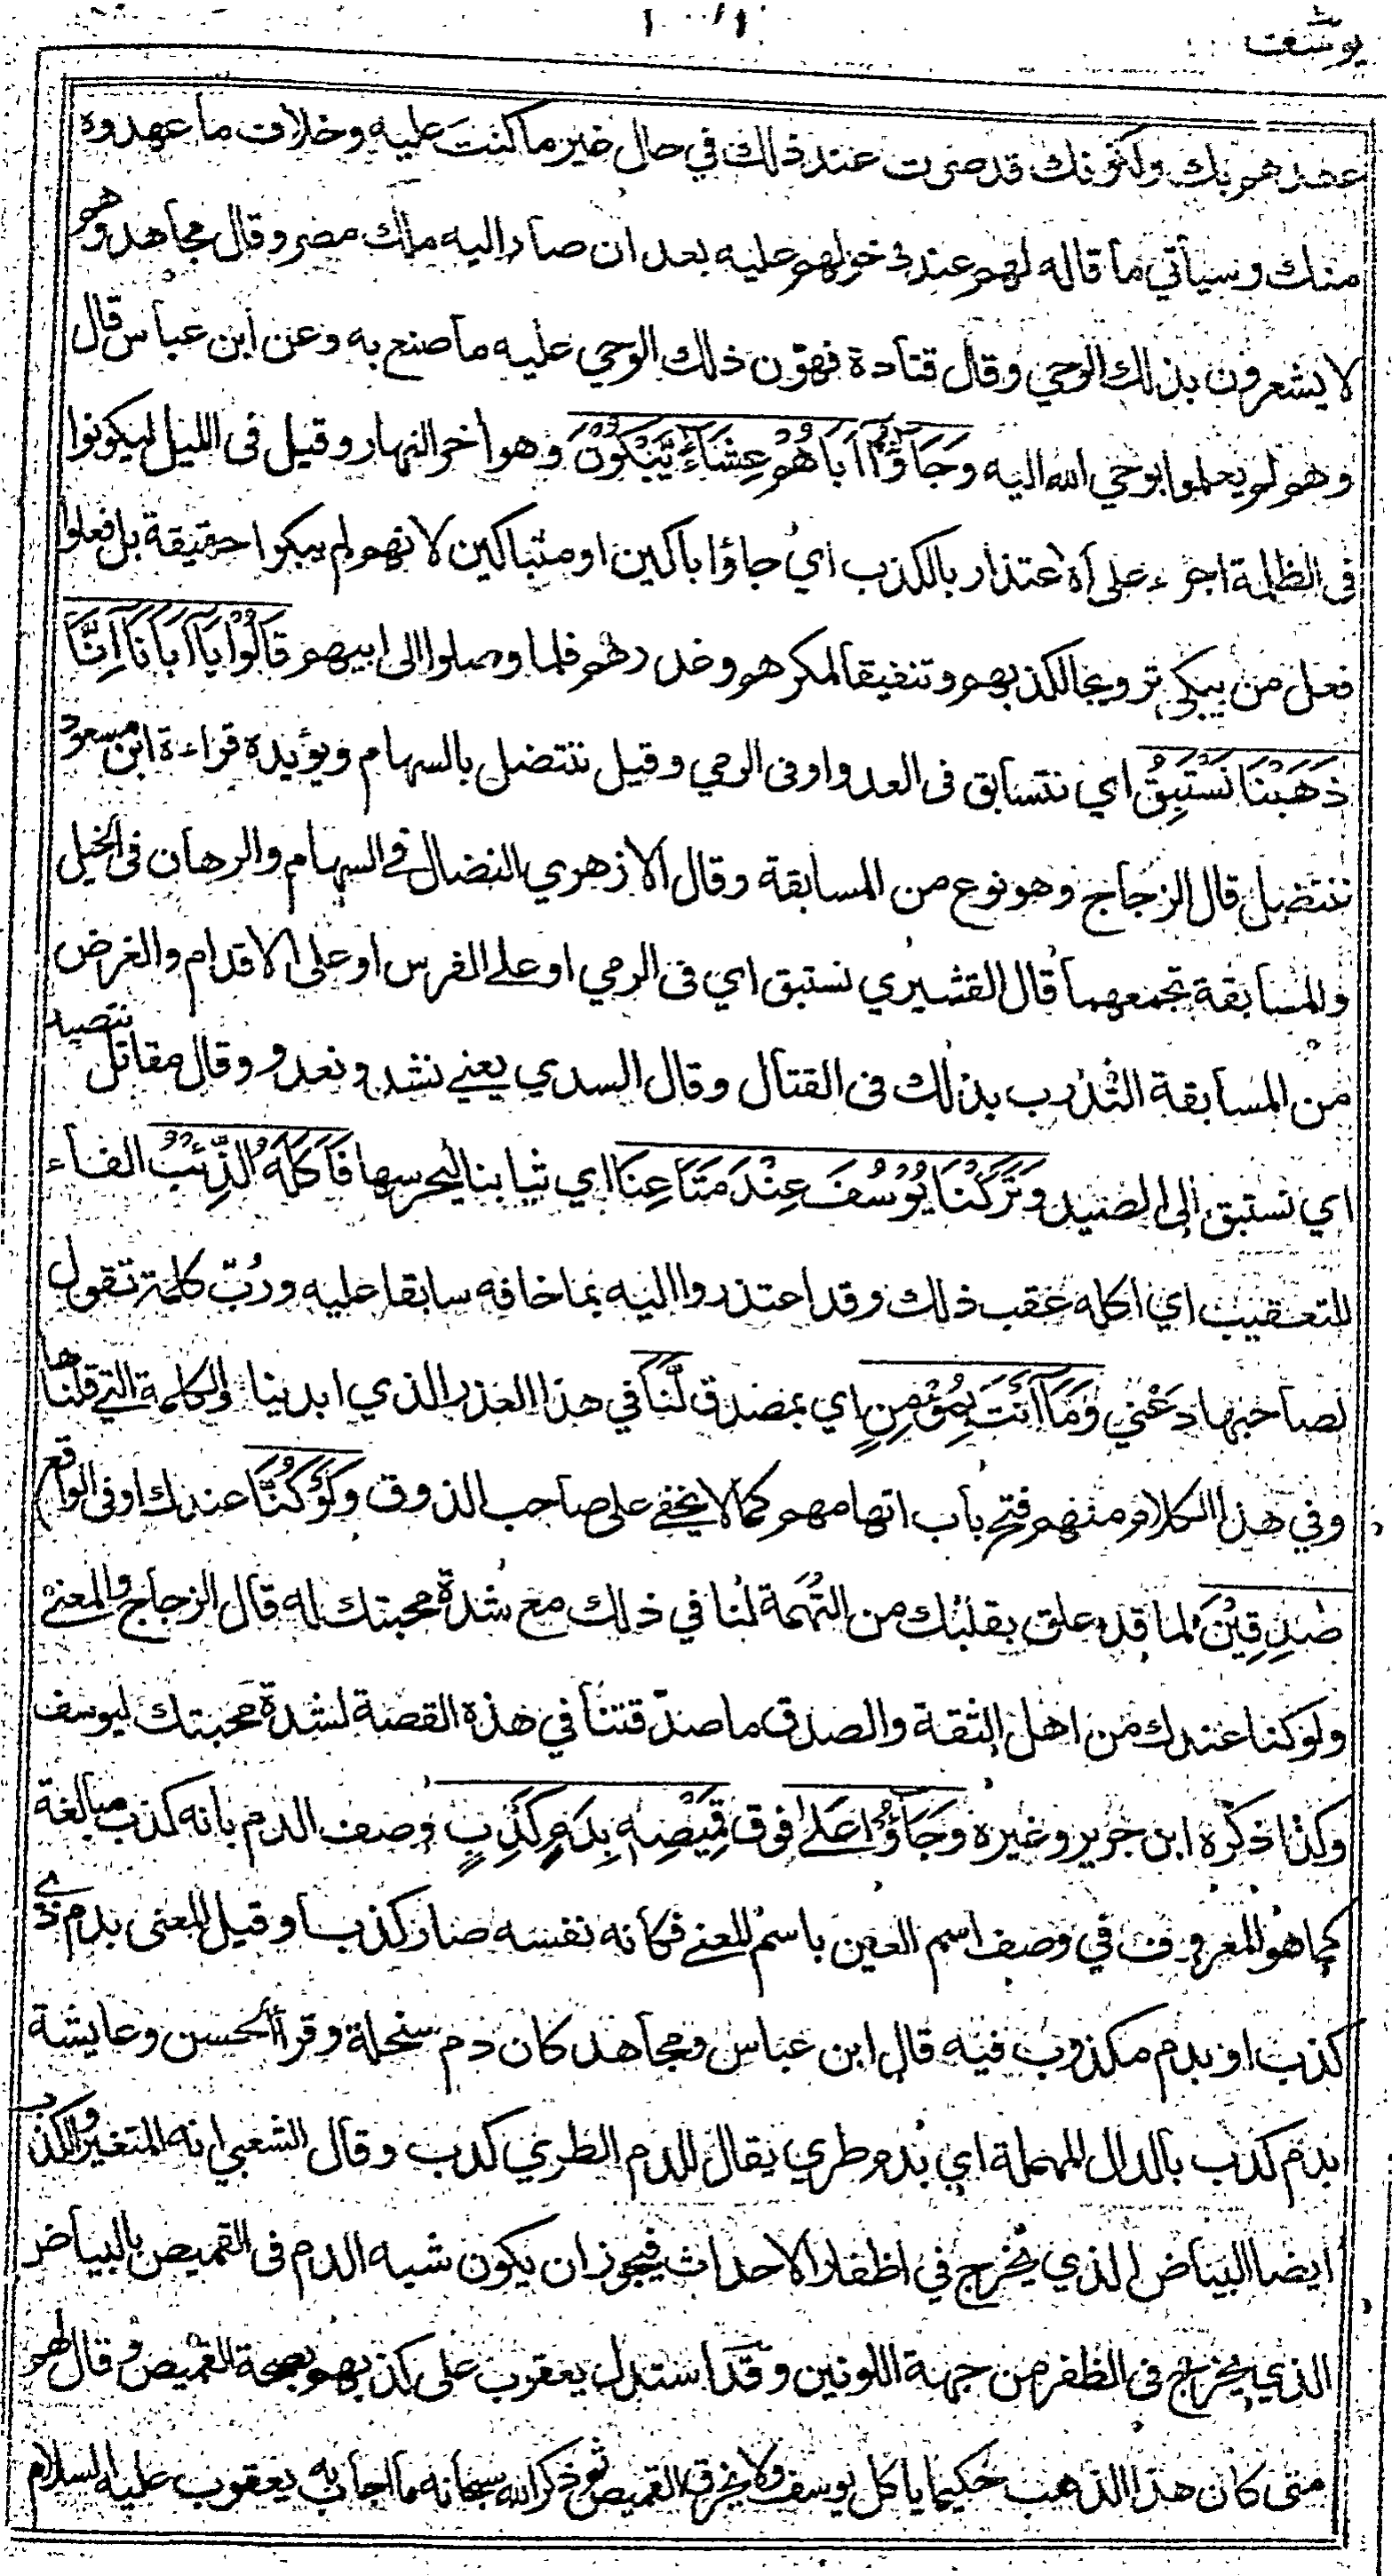 يوسف
عهدهم بك ولكونك قد صرت عند ذلك في حال غير ما كنت عليه وخلاف ما عهدوه
منك وسيأتي ما قاله لهم عند دخولهم عليه بعد ان صار اليه ملك مصر وقال مجاهد وهم
لا يشعرون بذلك الوحي وقال قتادة فهوّن ذلك الوحي عليه ما صنع به وعن ابن عباس قال
وهم لم يعلموا بوحي الله اليه وَجَاؤُٓا اَبَاهُمْ عِشَآءً يَّبْكُوْنَ وهو اخر النهار وقيل في الليل ليكونوا
في الظلمة اجرء على الاعتذار بالكذب اي جاؤا باكين او متباكين لانهم لم يبكوا حقيقة بل فعلوا
فعل من يبكي ترويجا لكذبهم وتنفيقا لمكرهم وغدرهم فلما وصلوا الى ابيهم قَالُوْا يَآ اَبَانَآ اِنَّا
ذَهَبْنَا نَسْتَبِقُ اي نتسابق في العدو او في الرمي وقيل ننتضل بالسهام ويؤيده قراءة ابن مسعود
ننتضل قال الزجاج وهو نوع من المسابقة وقال الازهري النضال في السهام والرهان في الخيل
والمسابقة تجمعهما قال القشيري نستبق اي في الرمي او على الفرس او على الاقدام والغرض
من المسابقة التدرب بذلك في القتال وقال السدي يعني نشد ونعدو وقال مقاتل نتصيد
اي نستبق الى الصيد وَتَرَكْنَا يُوْسُفَ عِنْدَ مَتَاعِنَا اي ثيابنا ليحرسها فَاَكَلَهُ الذِّئْبُ الفاء
للتعقيب اي اكله عقب ذلك وقد اعتذروا اليه بما خافه سابقا عليه ورُبّ كلمة تقول
لصاحبها دَعْني وَمَآ اَنْتَ بِمُؤْمِنٍ اي بمصدق لَّنَا في هذا العذر الذي ابدينا والكلمة التي قلناها
وفي هذا الكلام منهم فتح باب اتهامهم كما لا يخفى على صاحب الذوق وَلَوْ كُنَّا عندك او في الواقع
صٰدِقِيْنَ لما قد علق بقلبك من التُهَمة لنا في ذلك مع شدة محبتك له قال الزجاج والمعنى
ولو كنا عندك من اهل الثقة والصدق ما صدّقتنا في هذه القصة لشدة محبتك ليوسف
وكذا ذكره ابن جرير وغيره وَجَآؤُا عَلٰى فوق قَمِيْصِهٖ بِدَمٍ كَذِبٍ وصف الدم بانه كذب مبالغة
كما هو المعروف في وصف اسم العين باسم المعنى فكأنه نفسه صار كذبا وقيل المعنى بدم ذي
كذب او بدم مكذوب فيه قال ابن عباس ومجاهد كان دم سخلة وقرأ الحسن وعايشة
بدم كدب بالدال المهملة اي بدم طري يقال للدم الطري كدب وقال الشعبي انه المتغير والكدب
ايضا البياض الذي يخرج في اظفار الاحداث فيجوز ان يكون شبه الدم في القميص بالبياض
الذي يخرج في الظفر من جهة اللونين وقد استدل يعقوب على كذبهم بصحة القميص وقال لهم
متى كان هذا الذئب حكيما يأكل يوسف ولا يخرق القميص ثم ذكر الله سبحانه ما اجاب به يعقوب عليه السلام